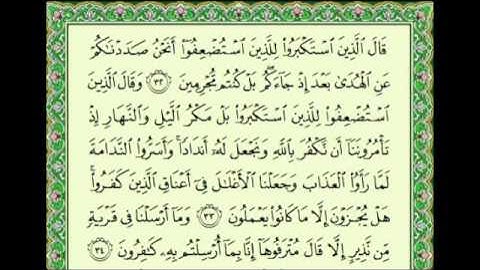 قَالَ ٱلَّذِينَ ٱسْتَكْبَرُوا۟ لِلَّذِينَ ٱسْتُضْعِفُوٓا۟ أَنَحْنُ صَدَدْنَٰكُمْ
عَنِ ٱلْهُدَىٰ بَعْدَ إِذْ جَآءَكُم بَلْ كُنتُم مُّجْرِمِينَ ٣٢ وَقَالَ ٱلَّذِينَ
ٱسْتُضْعِفُوا۟ لِلَّذِينَ ٱسْتَكْبَرُوا۟ بَلْ مَكْرُ ٱلَّيْلِ وَٱلنَّهَارِ إِذْ
تَأْمُرُونَنَآ أَن نَّكْفُرَ بِٱللَّهِ وَنَجْعَلَ لَهُۥٓ أَندَادًا وَأَسَرُّوا۟ ٱلنَّدَامَةَ
لَمَّا رَأَوُا۟ ٱلْعَذَابَ وَجَعَلْنَا ٱلْأَغْلَٰلَ فِىٓ أَعْنَاقِ ٱلَّذِينَ كَفَرُوا۟
هَلْ يُجْزَوْنَ إِلَّا مَا كَانُوا۟ يَعْمَلُونَ ٣٣ وَمَآ أَرْسَلْنَا فِى قَرْيَةٍ
مِّن نَّذِيرٍ إِلَّا قَالَ مُتْرَفُوهَآ إِنَّا بِمَآ أُرْسِلْتُم بِهِۦ كَٰفِرُونَ ٣٤